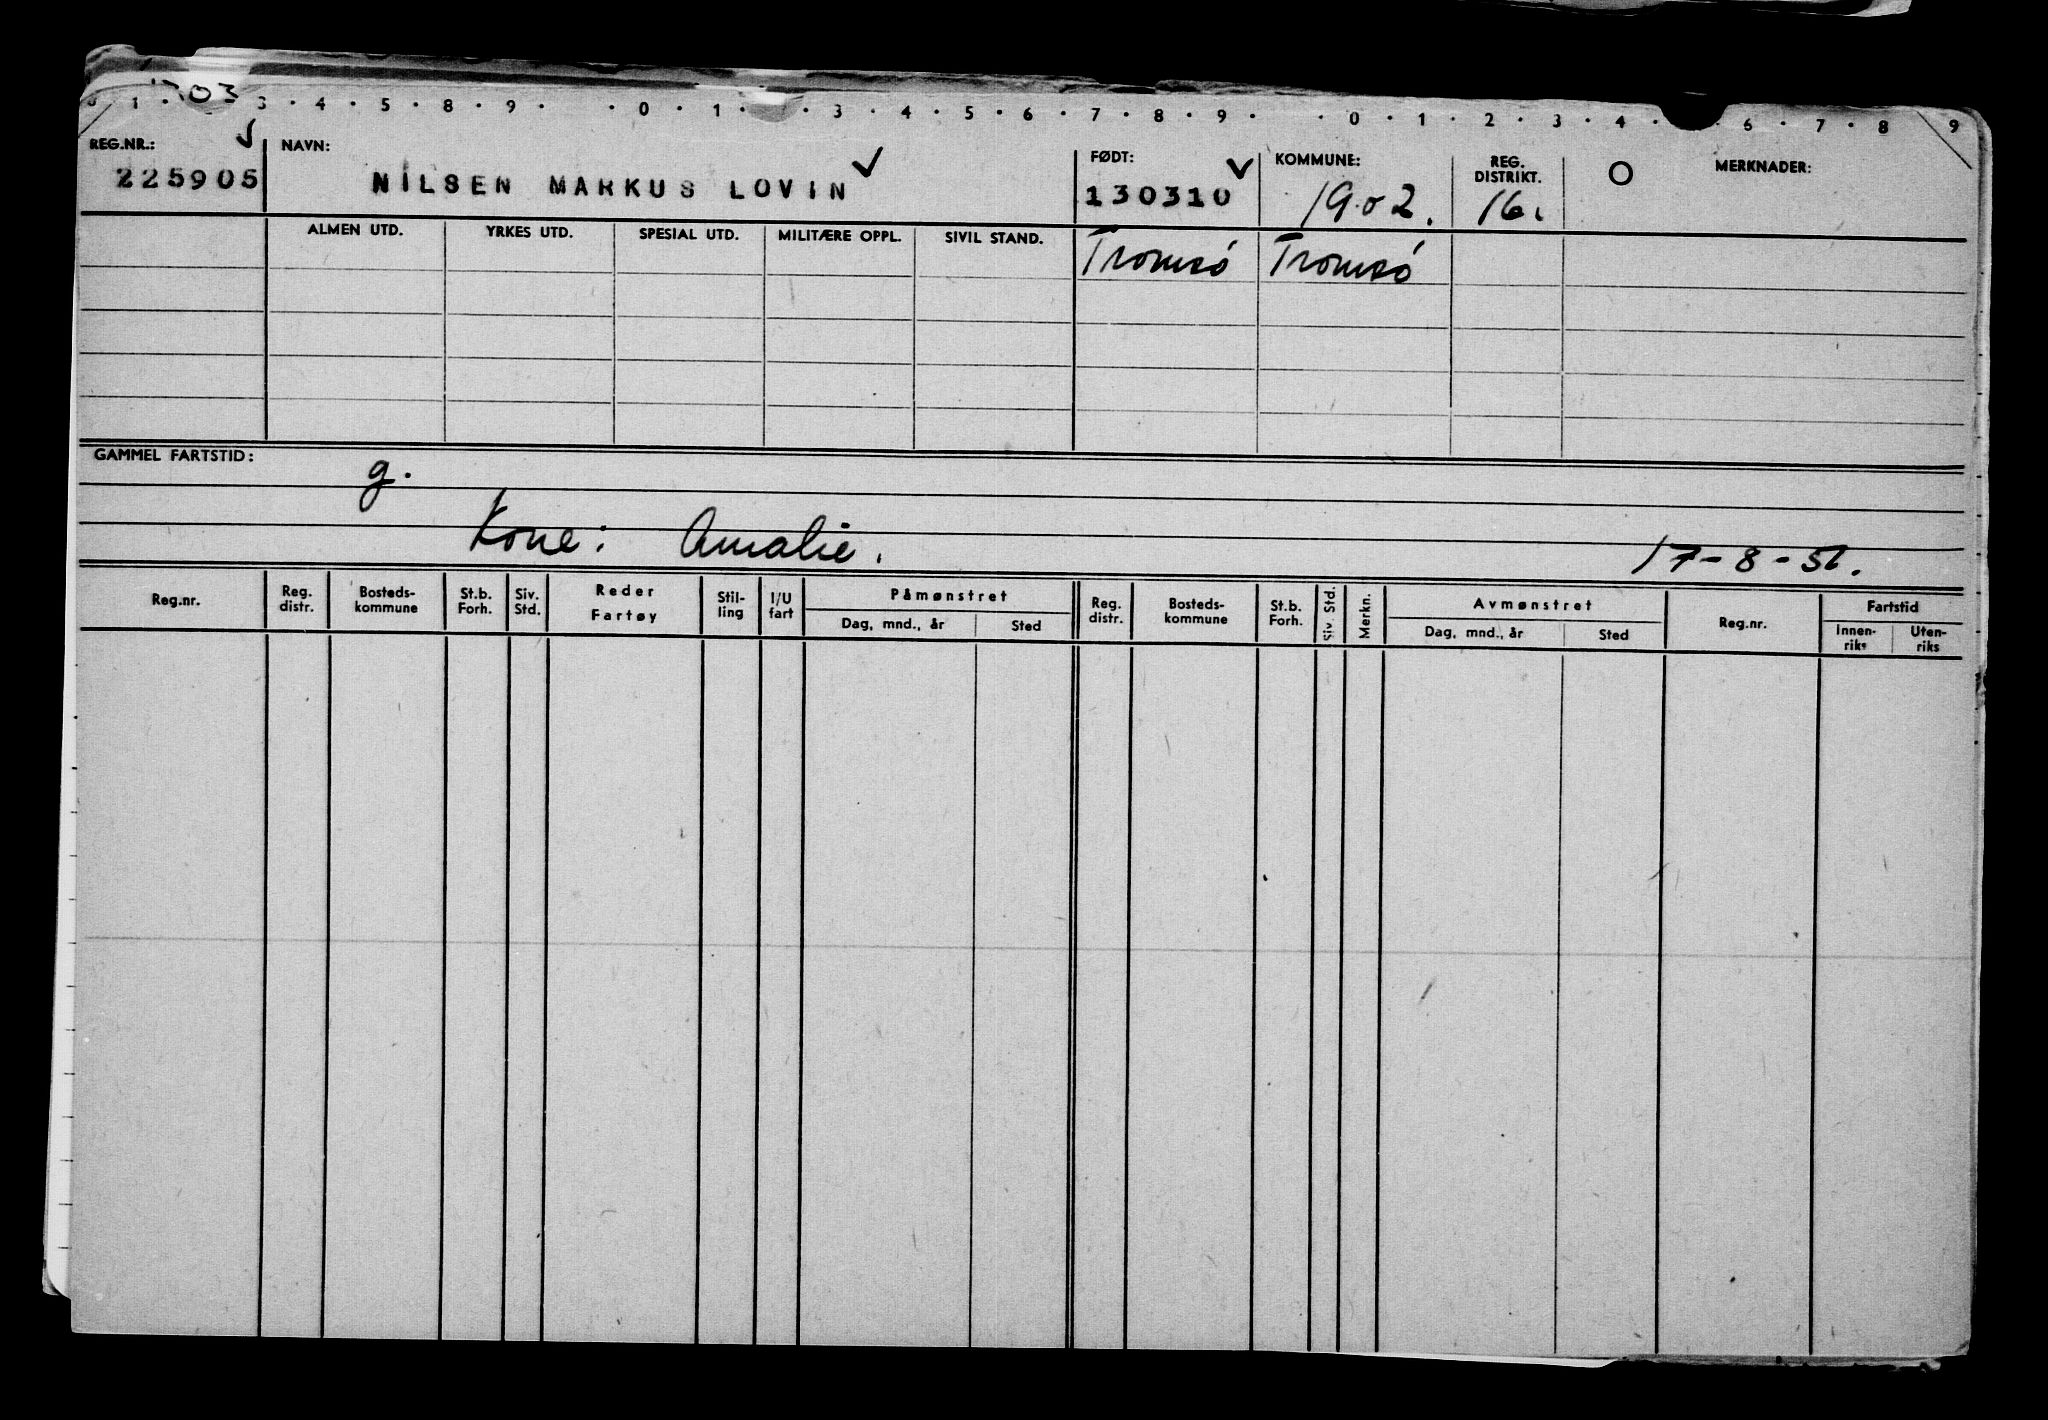 1 . 03 3 . 4 . 5 . 8 . 9 . . 0 . 1 . . 3 . 4 . 5 . 6 . 7 . 8 . 9 . . 0 . 1 . 2 . 3 . 4 . 6 . 7 . 8 9
REG.NR.: NAVN: FØDT: KOMMUNE: REG. DISTRIKT. O MERKNADER:
225905 NILSEN MARKUS LOVIN 130310 1902. 16.
ALMEN UTD. YRKES UTD. SPESIAL UTD. MILITÆRE OPPL. SIVIL STAND. Tromsó Tromsó
GAMMEL FARTSTID: g.
Kone: Amalie. 17-8-51.
Reg.nr. Reg. distr. Bosteds-kommune St.b. Forh. Siv. Std. Reder Fartøy Stil-ling I/U fart Påmønstret Reg. distr. Bosteds-kommune St.b. Forh. Siv. Std. Merkn. Avmønstret Reg.nr. Fartstid
Dag, mnd., år Sted Dag, mnd., år Sted Innen-riks Uten-riks